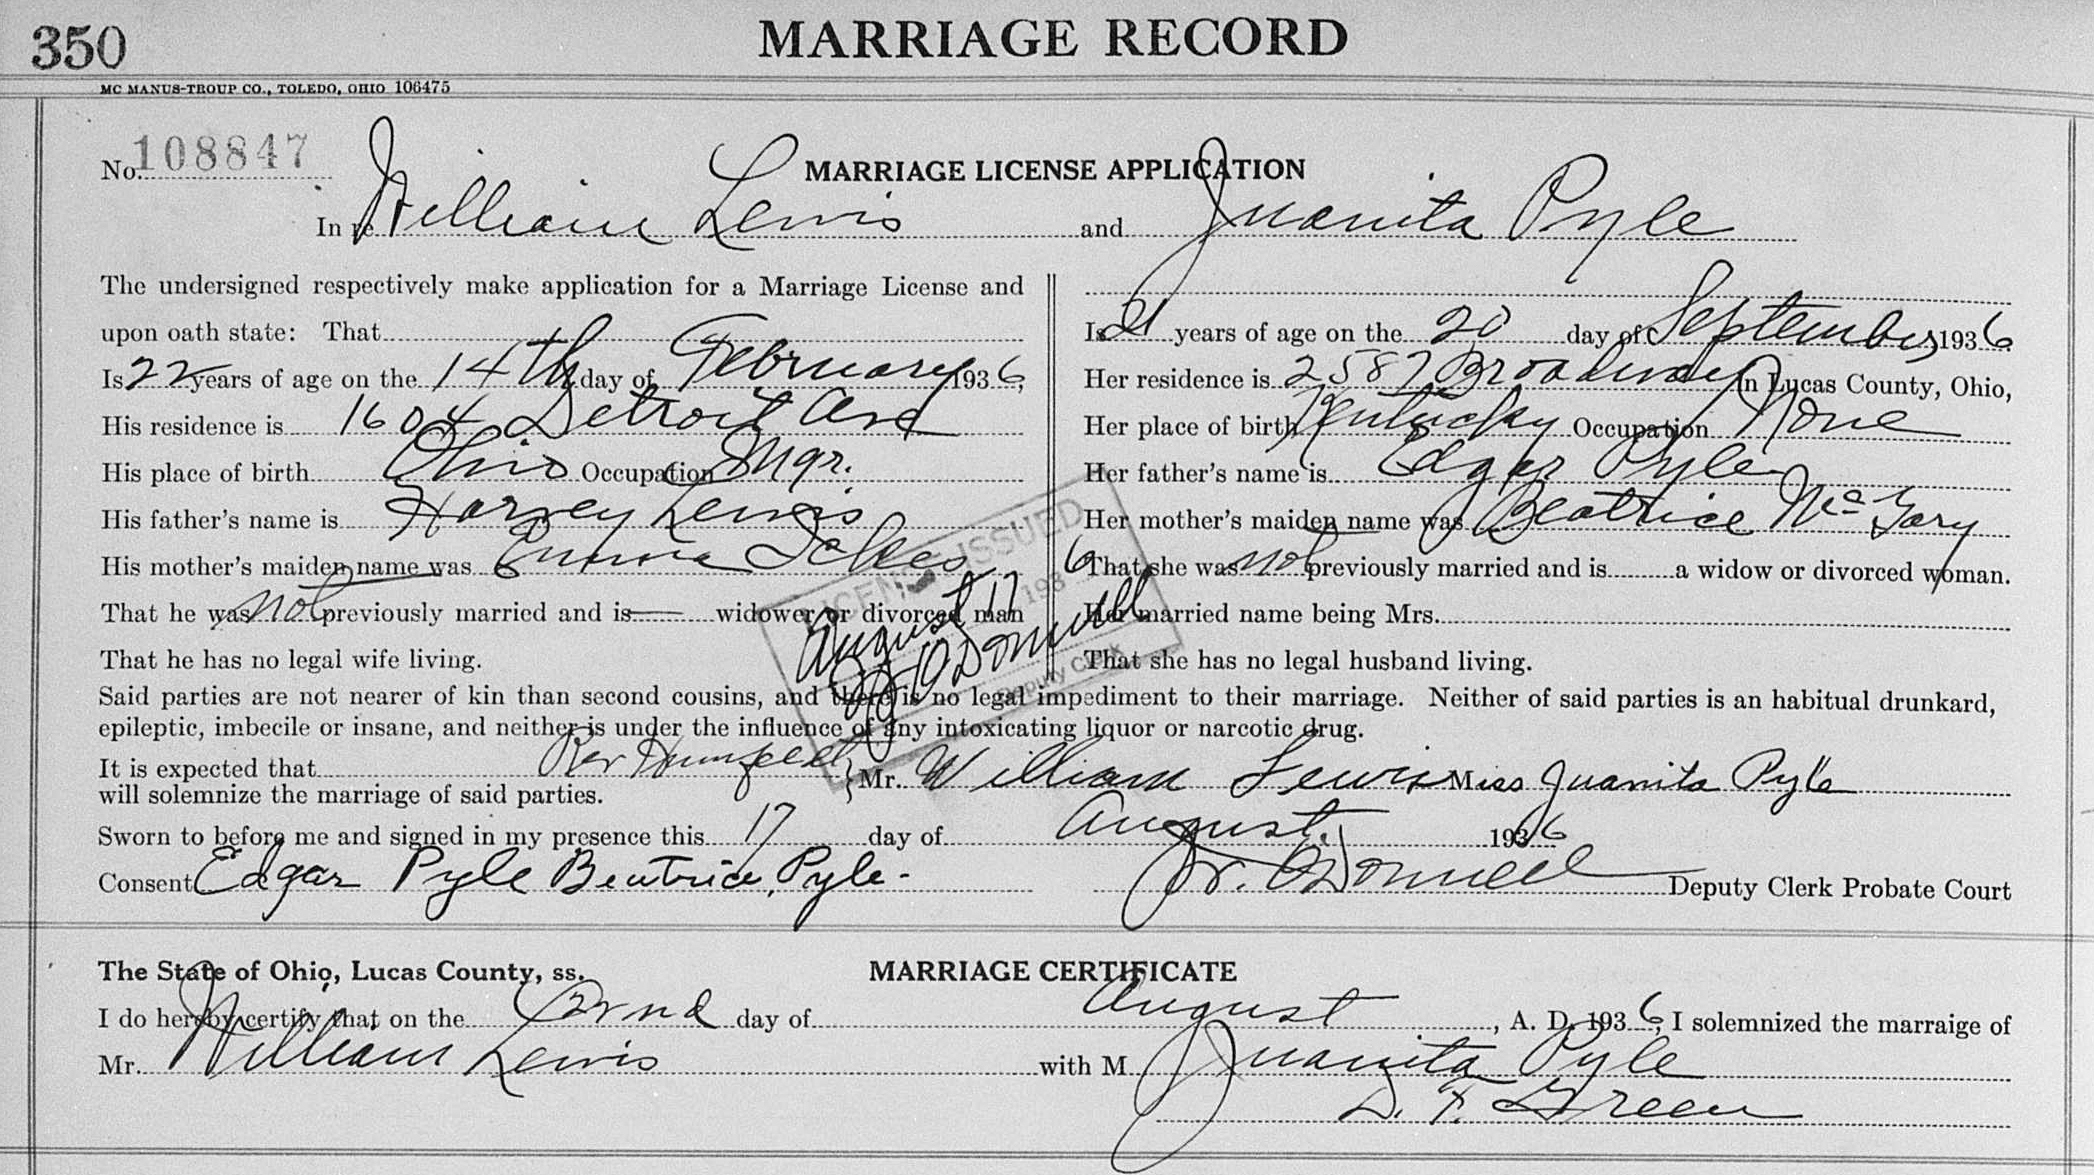 350
MARRIAGE RECORD
MC MANUS-TROUP CO., TOLEDO, OHIO 106475
No. 108847
MARRIAGE LICENSE APPLICATION
In re William Lewis and Juanita Pyle
The undersigned respectively make application for a Marriage License and
upon oath state: That
Is 22 years of age on the 14th day of February 1936,
His residence is 1604 Detroit Ave
His place of birth Ohio Occupation Mgr.
His father's name is Harvey Lewis
His mother's maiden name was Emma
That he was not previously married and is widower or divorced man
That he has no legal wife living.
Is 21 years of age on the 20 day of September, 1936
Her residence is 2587 Broadway in Lucas County, Ohio,
Her place of birth Kentucky Occupation None
Her father's name is Edgar Pyle
Her mother's maiden name was Beatrice McGary
That she was not previously married and is a widow or divorced woman.
Her married name being Mrs.
That she has no legal husband living.
LICENSE ISSUED
August 17 1936
O'Donnell
Deputy Clerk
Said parties are not nearer of kin than second cousins, and there is no legal impediment to their marriage. Neither of said parties is an habitual drunkard,
epileptic, imbecile or insane, and neither is under the influence of any intoxicating liquor or narcotic drug.
It is expected that Rev
will solemnize the marriage of said parties. } Mr. William Lewis Miss Juanita Pyle
Sworn to before me and signed in my presence this 17 day of August. 1936
Consent Edgar Pyle Beatrice, Pyle.
O'Donnell Deputy Clerk Probate Court
The State of Ohio, Lucas County, ss.
MARRIAGE CERTIFICATE
I do hereby certify that on the 22nd day of August, A. D. 1936, I solemnized the marraige of
Mr. William Lewis with M Juanita Pyle
D. F. Green